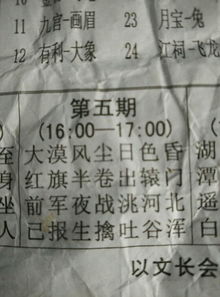 11 九官–画眉 23 月宝–兔
12 有利–大象 24 江祠–飞龙
第五期
(16:00—17:00)
至 大漠风尘日色昏 湖
身 红旗半卷出辕门 潭
坐 前军夜战洮河北 遥
人 已报生擒吐谷浑 白
以文长会